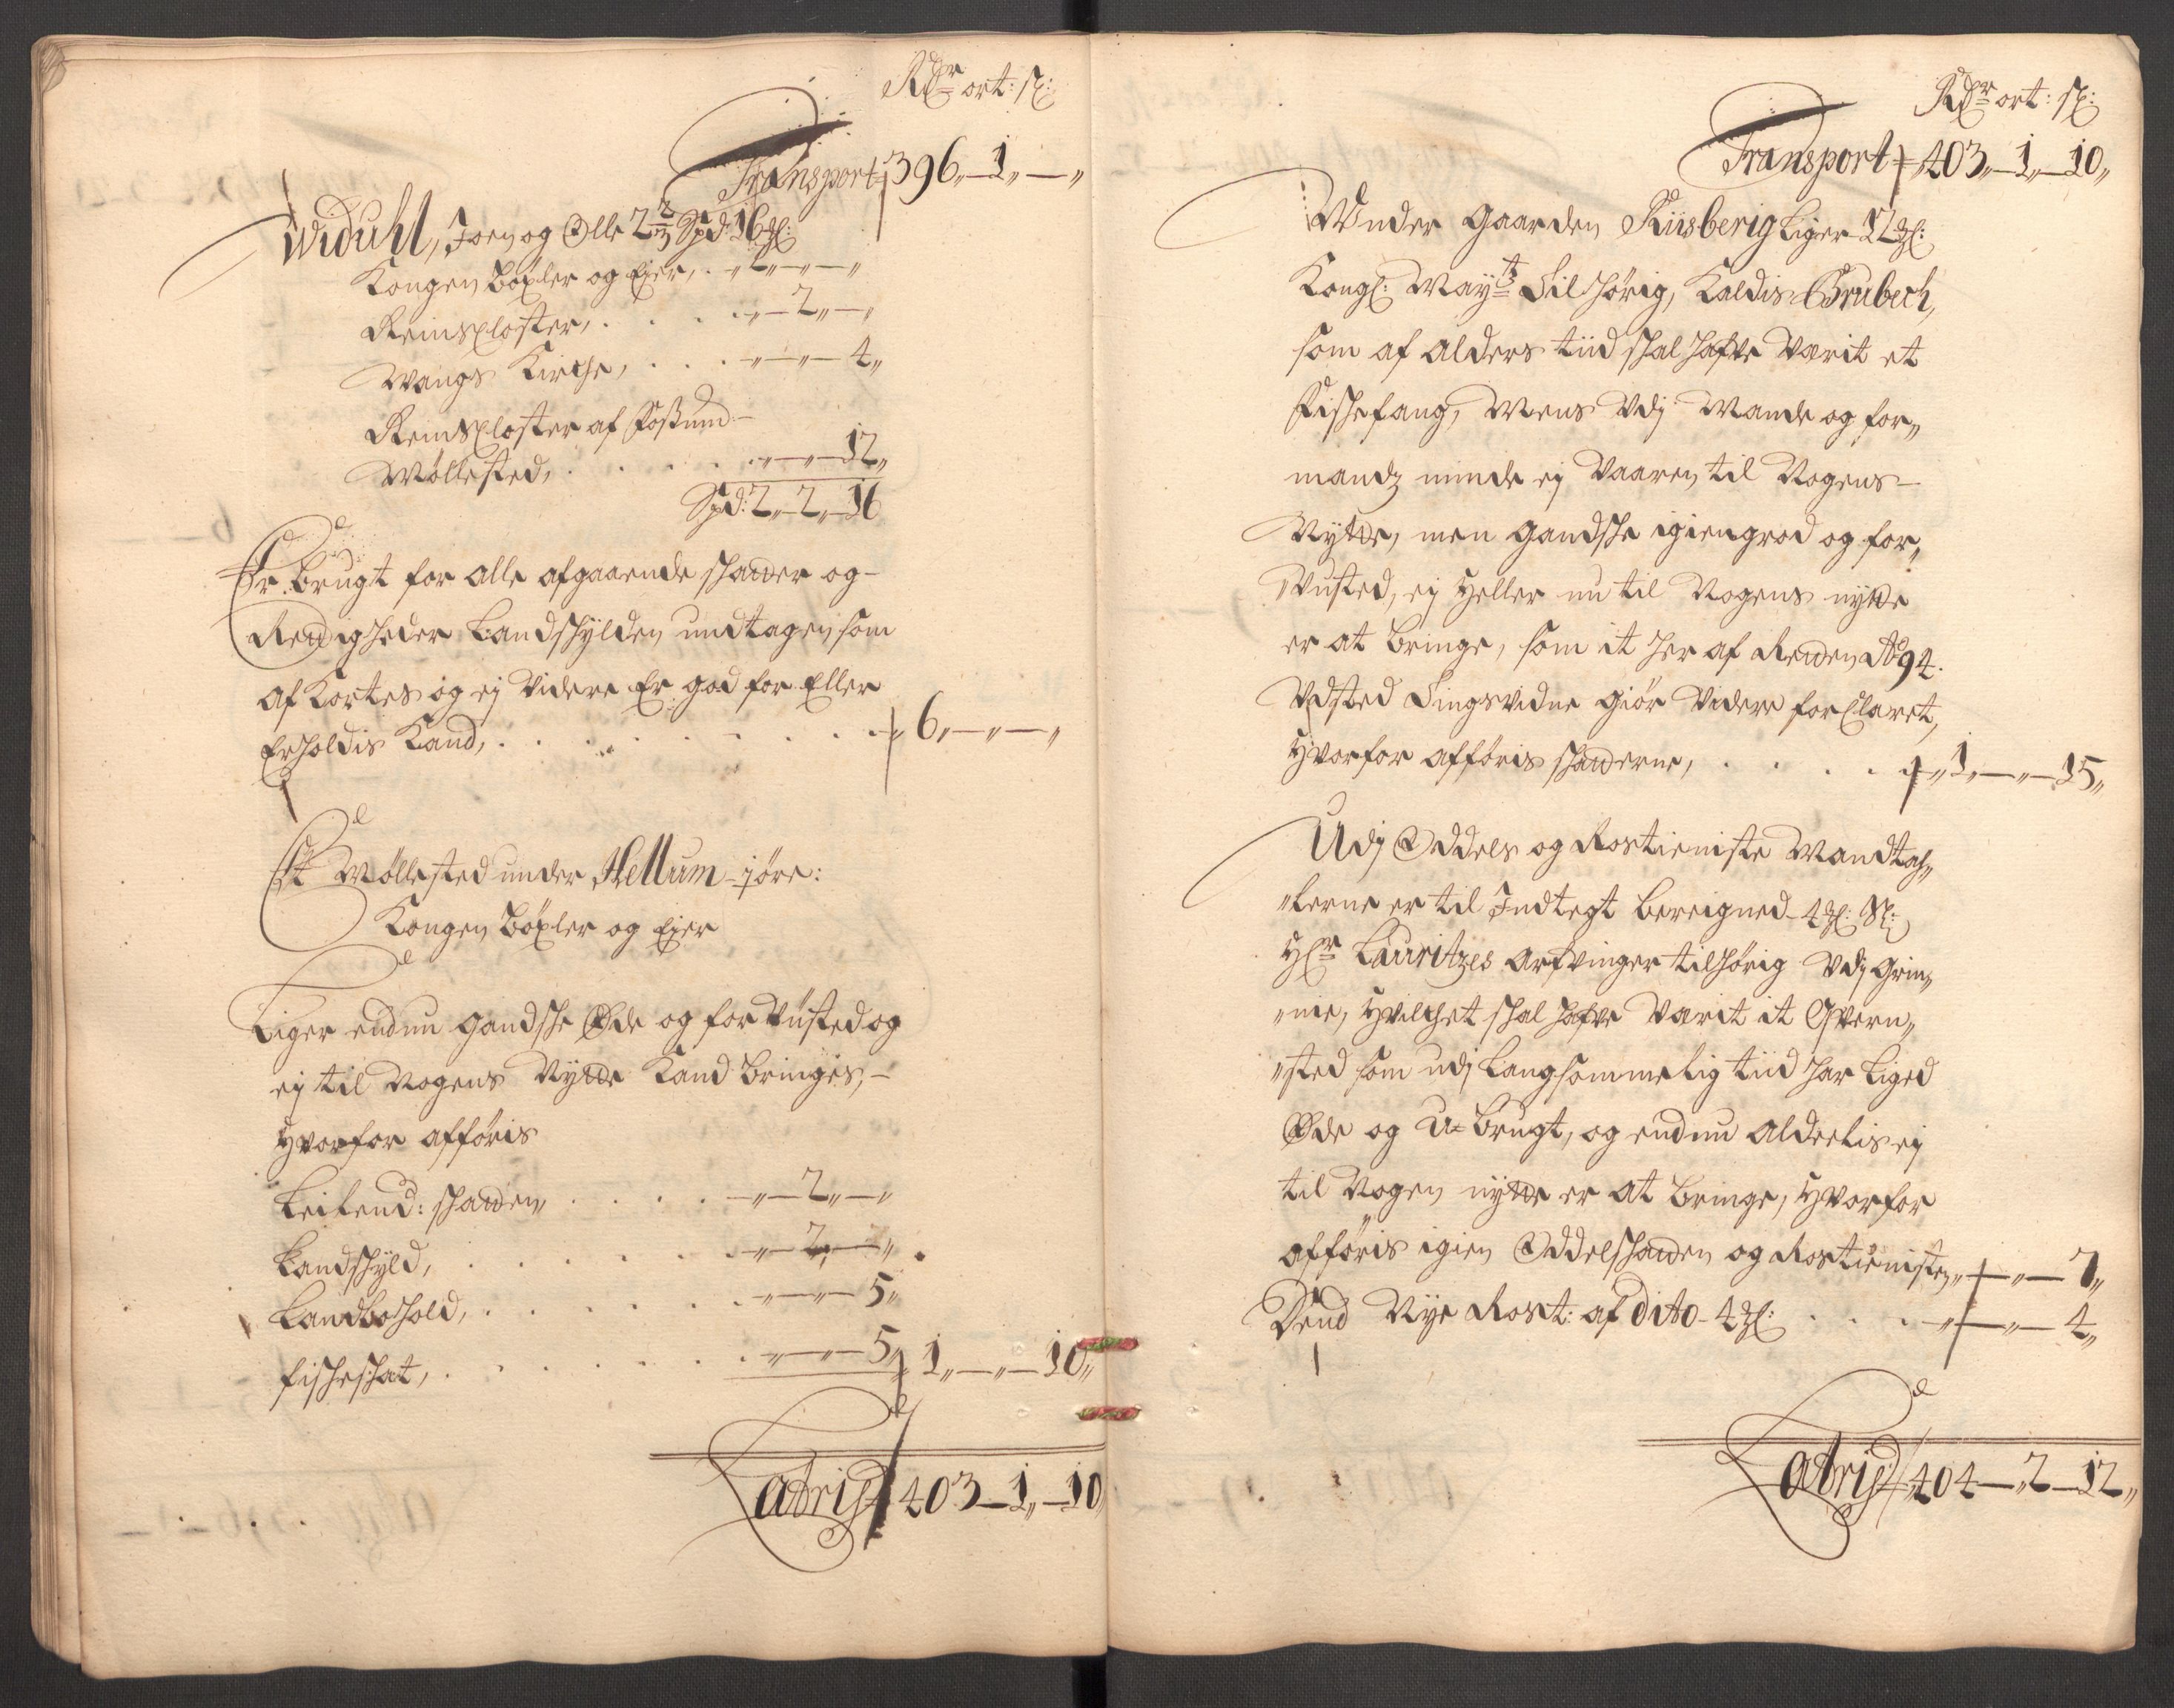 Rdr ort: sk:
Transport 396„ 1„ — „
Widuhl, Joen og Olle 2 2/3 Spd 16 ℳ:
Kongen böxler og Ejer, . „ 2 „ — „
Reinskloster, . . . . „ — 2„ — „
Wangs Kirche, . . . „ — „ — 4„
Reinskloster af Foßumd
Möllested, . . . . . „ — „ — 12„
Spd: 2„ 2„ 16
Er brugt for alle afgaaende schatter og
Retdigheder Landschylden undtagen som
af Kortes og ej Videre Er god for Eller
Erholdis Kand, . . . . . . . . 6„ — „ — „
Et Möllested under Hellum - 1 öre:
Kongen böxler og Ejer
Liger endnu gandsche Øde og forvüsted og
ej til Nogens Nytte Kand bringes,
hvorfor afføris
Leilend: schatten . . . . — „ — 2„ — „
Landschyld, . . . . . . — „ — 2„ — „
Landbohold, . . . . . . — „ — „ — 5„
fischeschat, . . . . . . „ — „ — 5„ 1„ — „ — 10„
Latris 403 — 1„ — 10
Rdr ort: sk:
Transport 403„ — 1„ — 10„
Under gaarden Riisberig Liger 12 ℳ:
Kongl: Mayts Tilhörig, Kaldis Brubech,
som af Alders tiid schal hafve Varit et
Fischefang, Mens Udj Mande og for„
mands minde ej Vaaren til Nogens
Nytte, men gandsche igiengrod og for„
Vusted, ej heller nu til Nogens nytte
er at bringe, som it her af Retten Ao 94.
Udsted Tingsvidne giör Videre forklaret,
hvorfor afföris schatterne, . . . . . 1„ — „ — 15„
Udj Oddels og Rostieniste Mandtah„
„lerne er til Indtegt bereigned 4 ℳ: Sl:
Hr Lauritzes Arfvinger tilhörig Udj Grin„
„nie, hvilchet schal hafve Varit it Qvern„
„sted som udj Langsommelig tiid har Liged
Øde og U=brugt, og endnu alderlis ej
til Nogen nytte er at bringe, hvorfor
afföris igien Oddelschatten og Rostienisten„ — „ — 7„
Dend Nye Rost: af dito 4 ℳ: . . . — „ — „ — 4„
Latris 404 — „ 2 — 12„